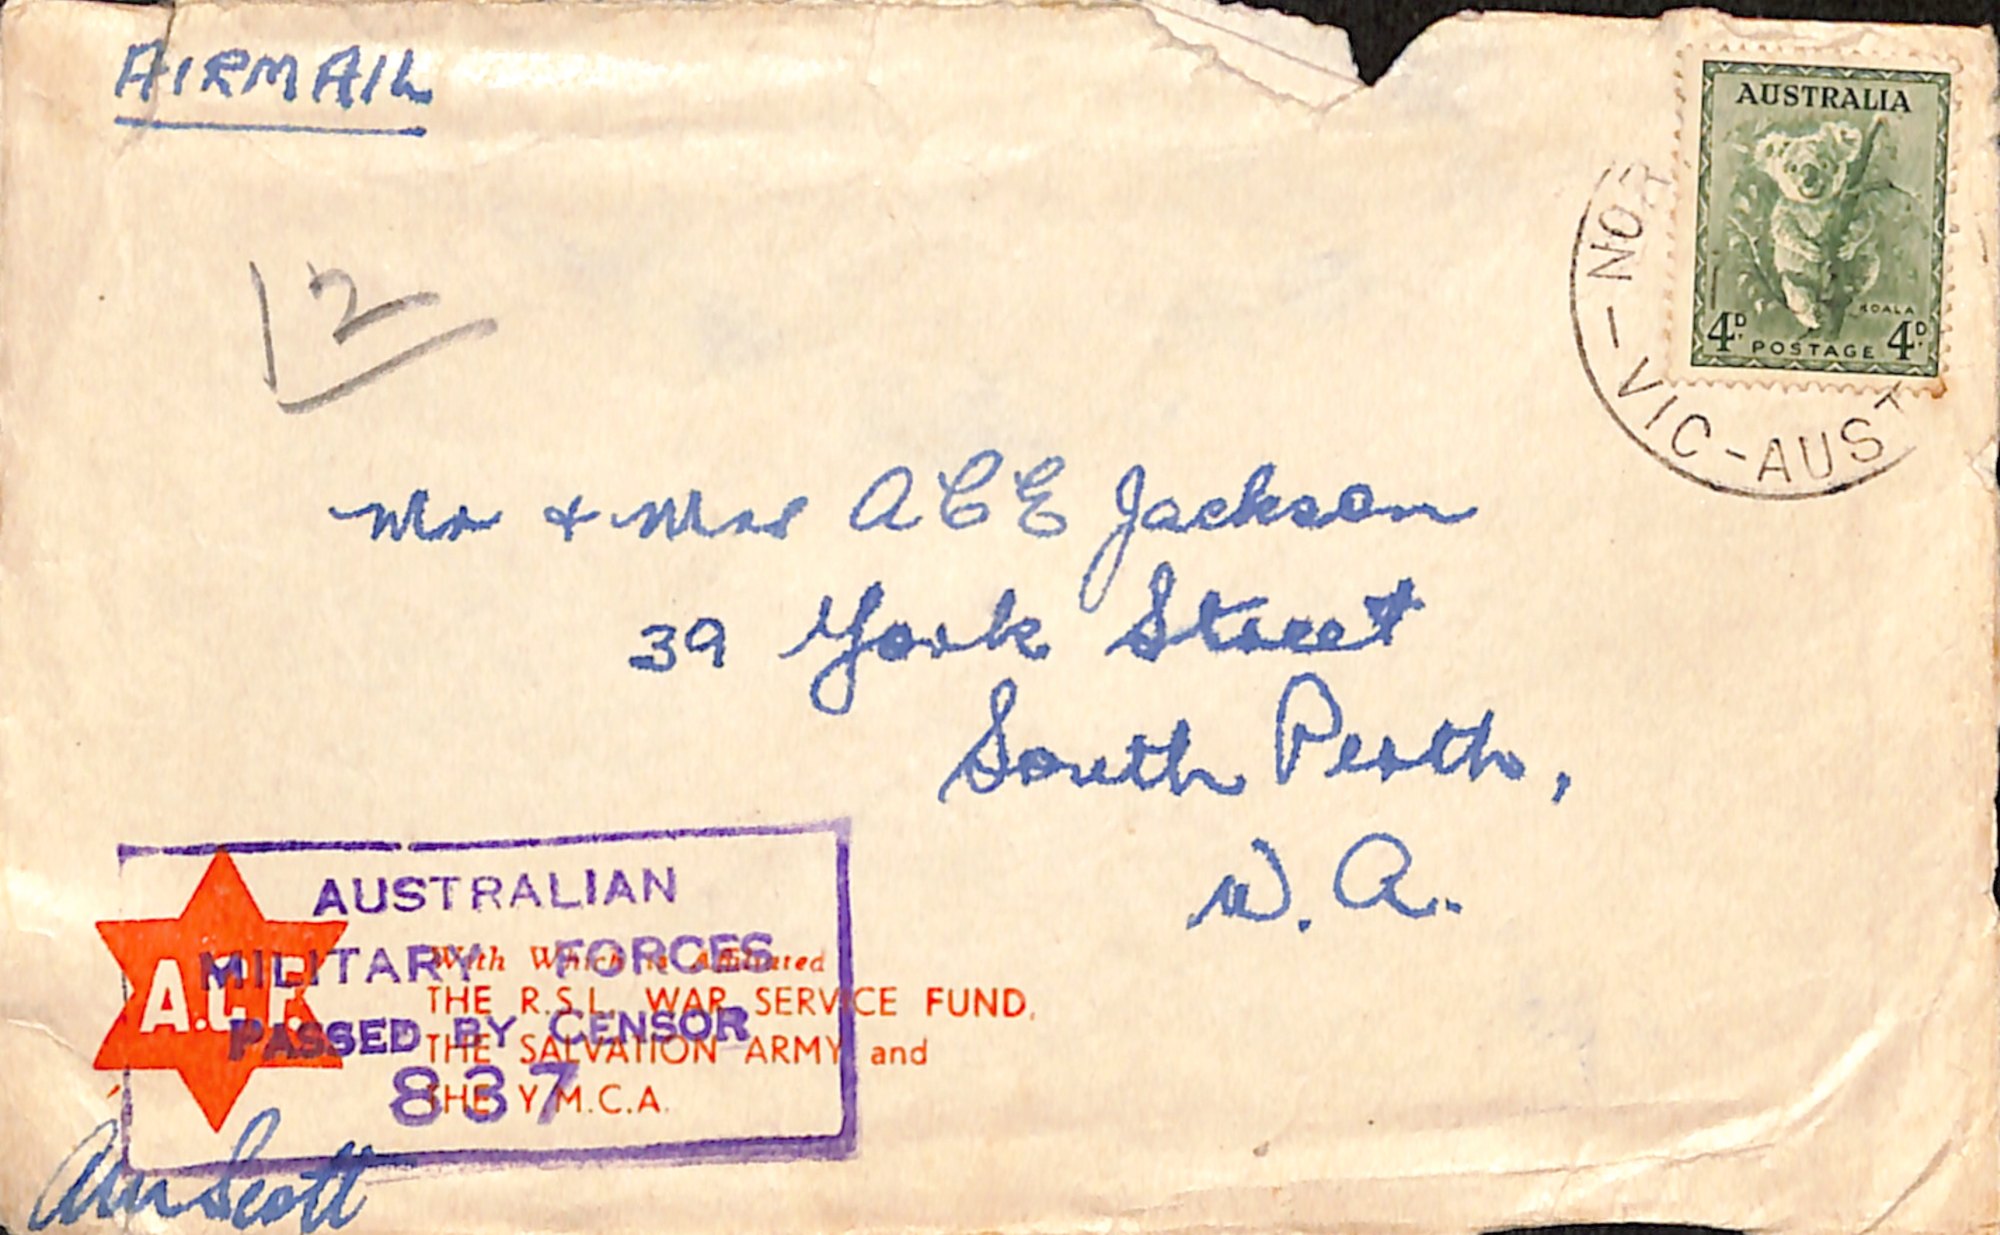 AIRMAIL
AUSTRALIA
KOALA
4D. POSTAGE 4D.
VIC - AUST
12
Mr & Mrs A C E Jackson
39 York Street
South Perth,
W. A.
AUSTRALIAN
MILITARY FORCES
PASSED BY CENSOR
837
A.C.F.
With Which is Affiliated
THE R.S.L. WAR SERVICE FUND,
THE SALVATION ARMY and
THE Y.M.C.A.
Scott